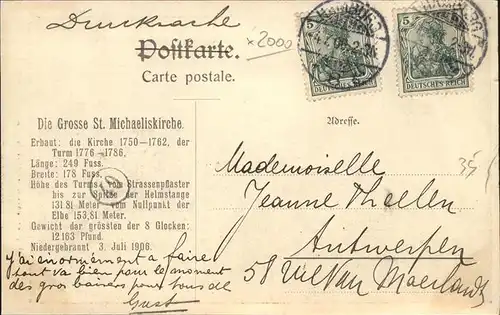 Drucksache
Postkarte.
Carte postale.
x2000
5
DEUTSCHES REICH
5
DEUTSCHES REICH
Die Grosse St. Michaeliskirche.
Erbaut: die Kirche 1750—1762, der
Turm 1776—1786.
Länge: 249 Fuss.
Breite: 178 Fuss.
Höhe des Turms: vom Strassenpflaster
bis zur Spitze der Helmstange
131,81 Meter vom Nullpunkt der
Elbe 153,81 Meter.
Gewicht der grössten der 8 Glocken:
12163 Pfund.
Niedergebrannt 3. Juli 1906.
Adresse.
35
Mademoiselle
Jeanne Theelen
Antwerpen
58 Van Maerlandt
J'ai enormément a faire
tout va bien pour le moment
des gros baisers pour tous de
Gust